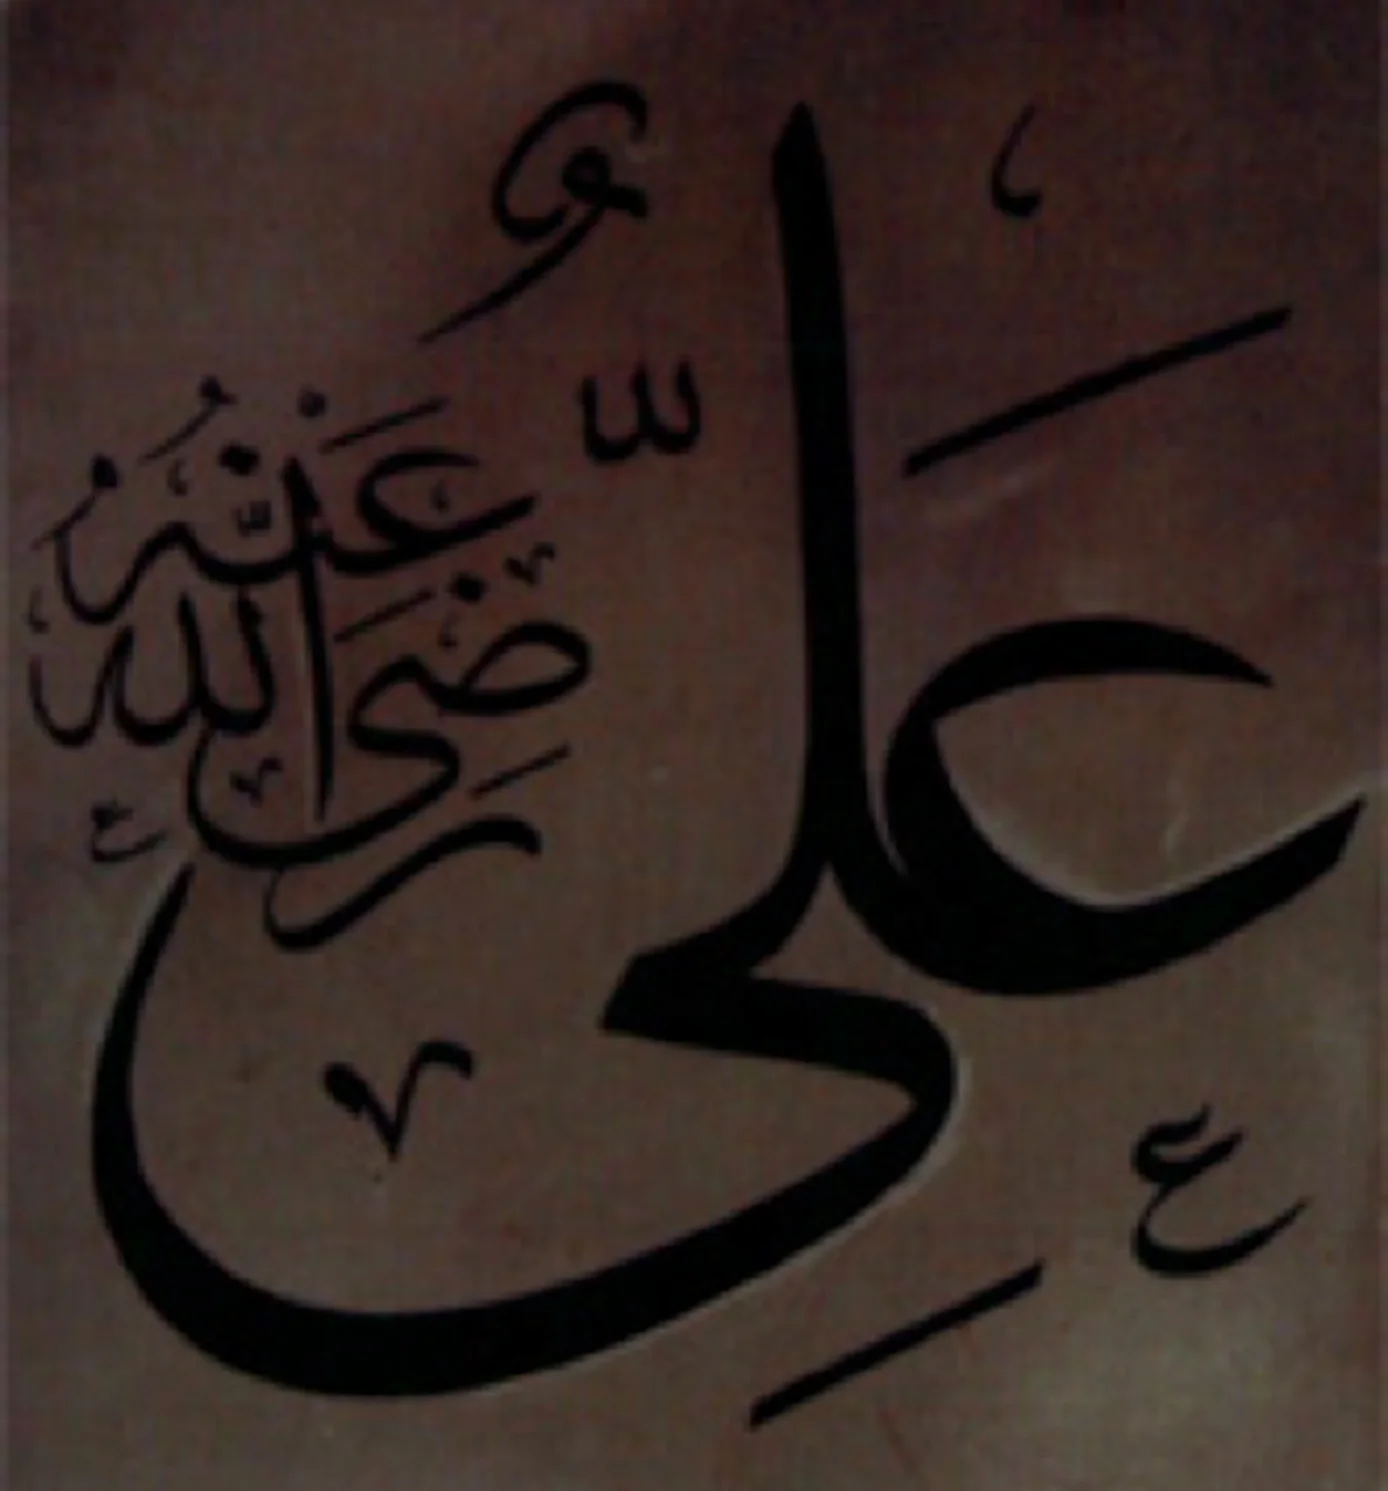 عَلِيٌّ
رَضِيَ اللهُ عَنْهُ